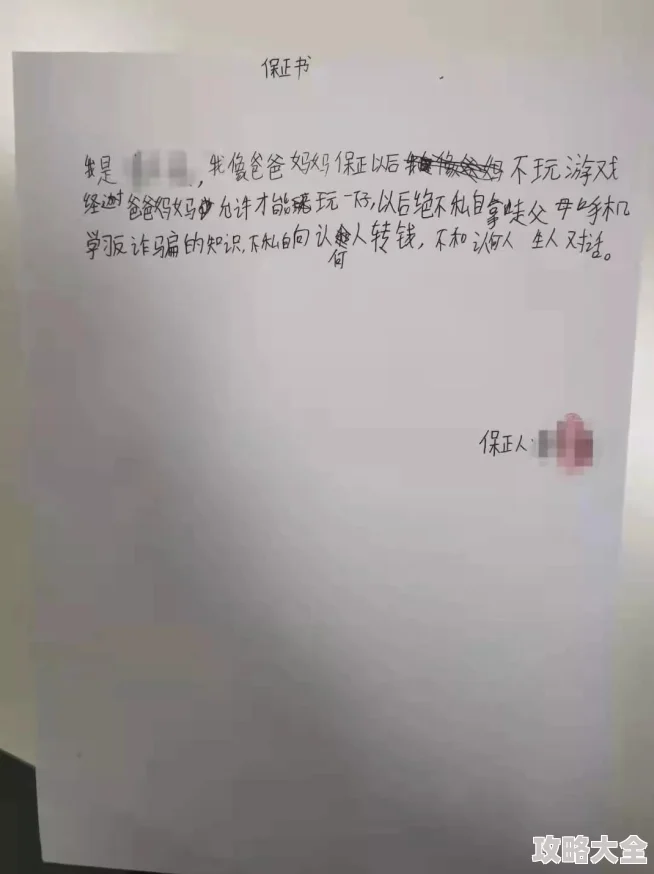 保正书
我是,我像爸爸妈妈保正以后不玩游戏
经过爸爸妈妈允许才能玩一仔,以后绝不私自拿父母手机
学反诈骗的知识,不私自向认何人转钱,不和认何人生人对话。
保正人:
攻略大全